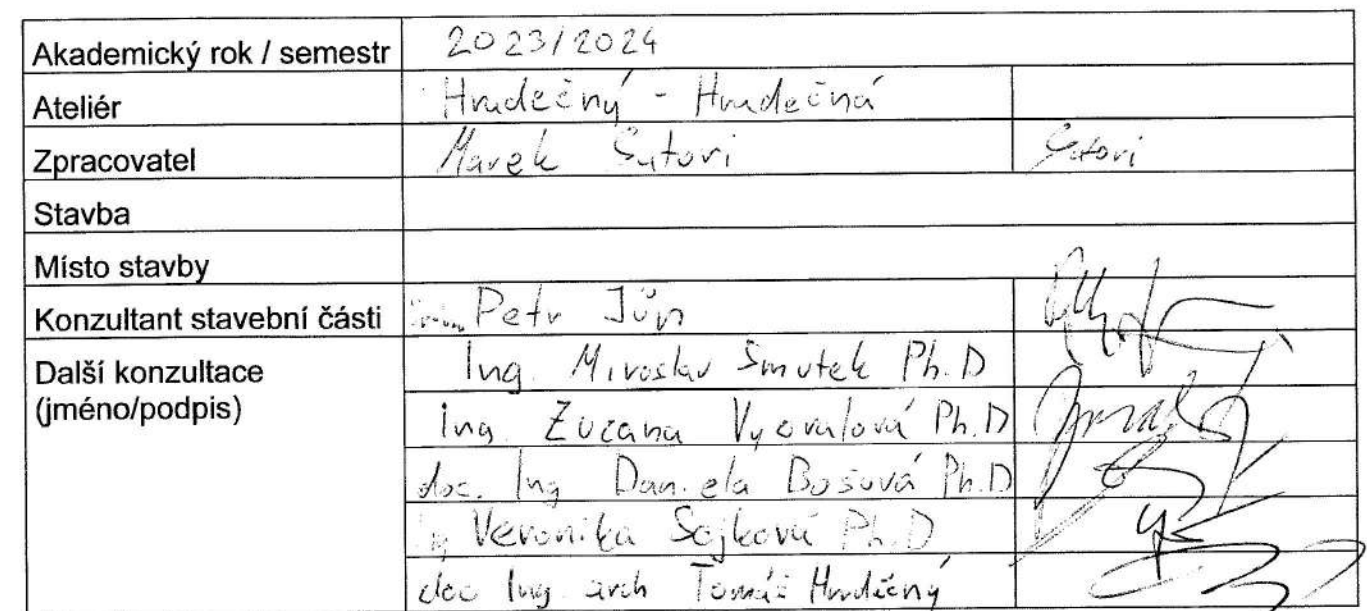 Akademický rok / semestr 2023/2024
Ateliér Hrudečný - Hrudečná
Zpracovatel Marek Šutovi Šutovi
Stavba
Místo stavby
Konzultant stavební části Petr Jůn
Další konzultace Ing. Miroslav Smutek Ph.D
(jméno/podpis) Ing. Zuzana Vyoralová Ph.D
doc. Ing Daniela Bošová Ph.D
Veronika Sojková Ph.D
doc Ing arch Tomáš Hrudečný